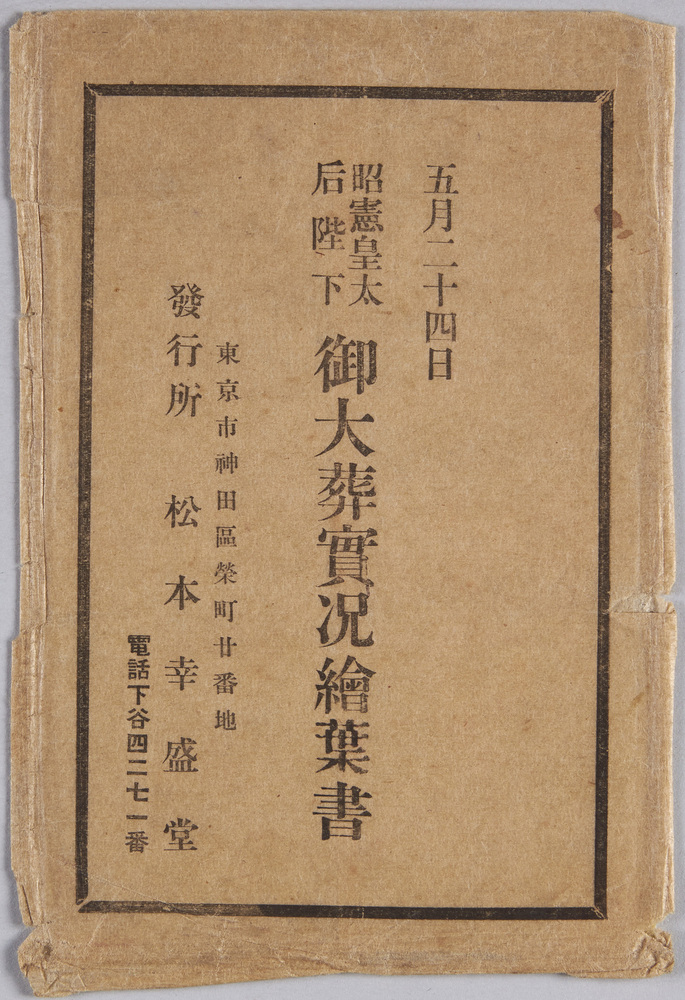 五月二十四日
昭憲皇太
后陛下
御大葬實况繪葉書
東京市神田區榮町廿番地
發行所 松本幸盛堂
電話下谷四二七一番